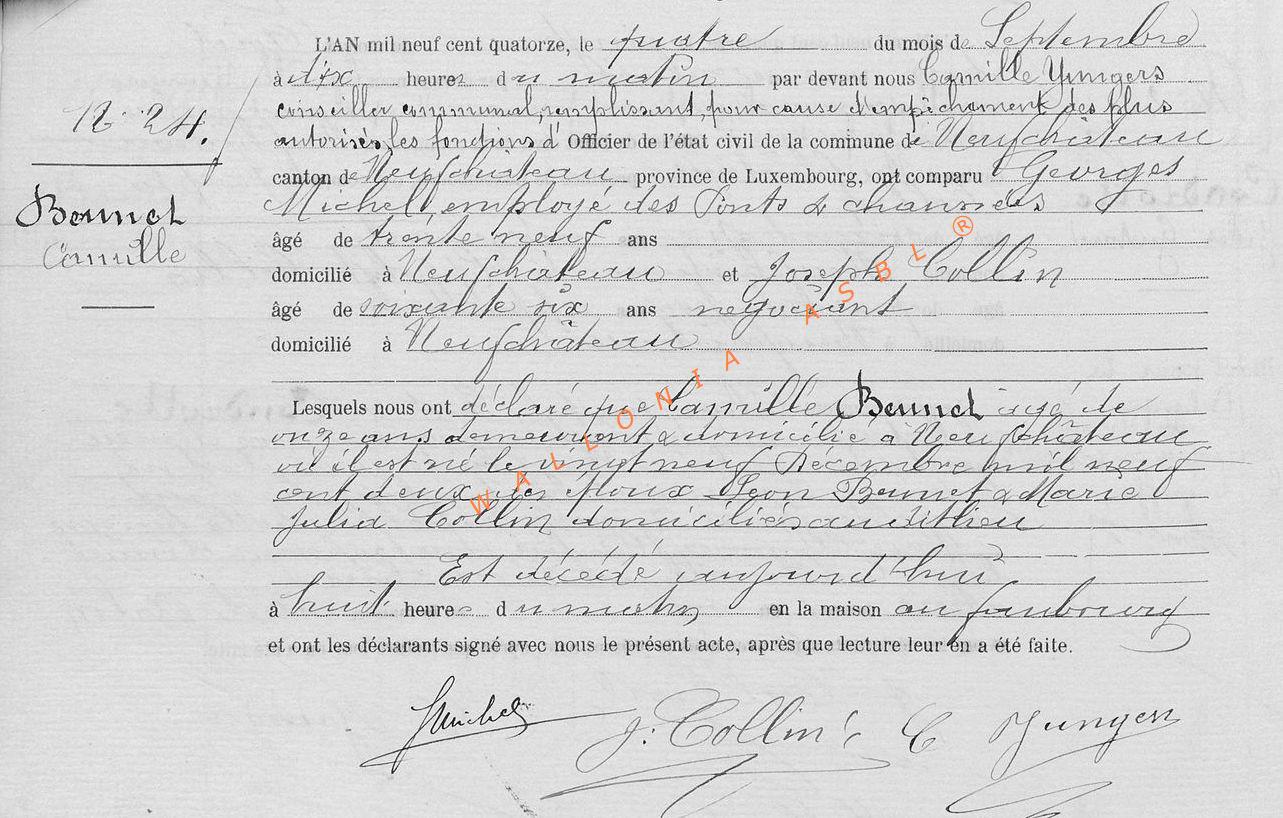 L'AN mil neuf cent quatorze, le quatre du mois de Septembre
à dix heures du matin par devant nous Camille Yungers
conseiller communal, remplissant, pour cause d'empêchement des plus
autorisés, les fonctions d'Officier de l'état civil de la commune de Neufchâteau
canton de Neufchâteau province de Luxembourg, ont comparu Georges
Michel, employé des Ponts & chaussées
âgé de trente neuf ans
domicilié à Neufchâteau et Joseph Collin
âgé de soixante six ans négociant
domicilié à Neufchâteau
No 24.
Bennet
Camille
Lesquels nous ont déclaré que Camille Bennet âgé de
onze ans demeurant & domicilié à Neufchâteau
où il est né le vingt neuf Décembre mil neuf
cent deux, des époux Léon Bennet & Marie
Julia Collin domiciliés audit lieu
Est décédé aujourd'hui
à huit heures du matin en la maison au faubourg
et ont les déclarants signé avec nous le présent acte, après que lecture leur en a été faite.
GMichel J. Collin C Yungers
WALLONIA ASBL ®